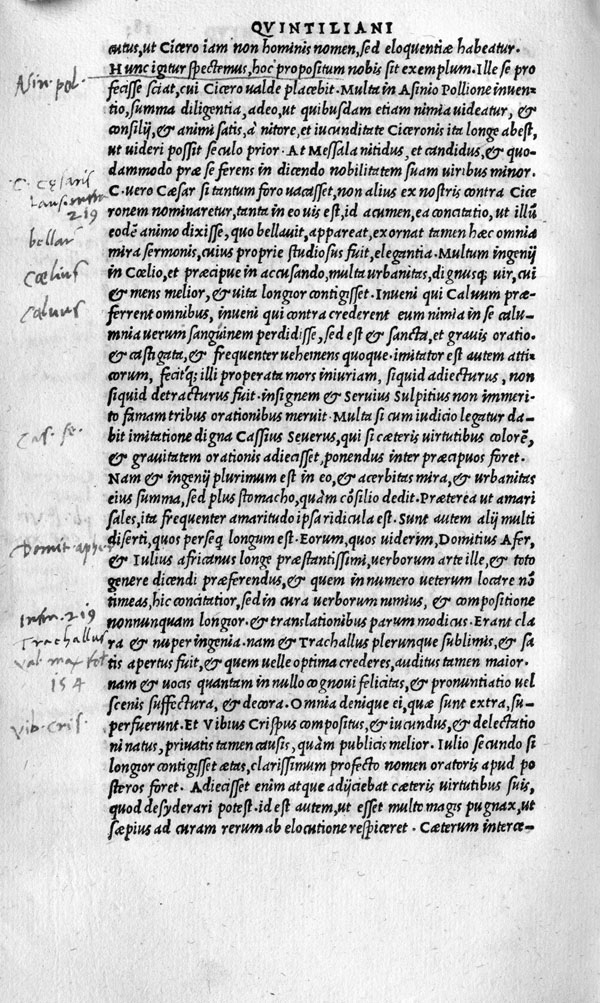 QVINTILIANI
cutus, ut Cicero iam non hominis nomen, sed eloquentiæ habeatur.
Hunc igitur spectemus, hoc propositum nobis sit exemplum. Ille se pro
Asin. pol.
fecisse sciat, cui Cicero valde placebit. Multa in Asinio Pollione inuen-
tio, summa diligentia, adeo, ut quibusdam etiam nimia videatur, &
consilij, & animi satis, à nitore, et iucunditate Ciceronis ita longe abest,
ut videri possit seculo prior. At Messala nitidus, et candidus, & quo-
dammodo præ se ferens in dicendo nobilitatem suam viribus minor.
C. Cęsaris
C. vero Cæsar si tantum foro vacasset, non alius ex nostris contra Cice
219
ronem nominaretur, tanta in eo vis est, id acumen, ea concitatio, ut illũ
eodẽ animo dixisse, quo bellauit, appareat, exornat tamen hæc omnia
mira sermonis, cuius proprie studiosus fuit, elegantia. Multum ingenij
Cœlius
in Cœlio, et præcipue in accusando, multa urbanitas, dignusq; vir, cui
& mens melior, & uita longior contigisset. Inveni qui Caluum præ-
Caluus
ferrent omnibus, inveni qui contra crederent eum nimia in se calu-
mnia verum sanguinem perdidisse, sed est & sancta, et gravis oratio.
& castigata, & frequenter uehemens quoque. imitator est autem atti-
corum, fecitq; illi properata mors iniuriam, siquid adiecturus, non
siquid detracturus fuit. insignem & Seruius Sulpitius non immeri-
to famam tribus orationibus meruit. Multa si cum iudicio legatur da-
Cas. se.
bit imitatione digna Cassius Seuerus, qui si cæteris virtutibus colorẽ,
& gravitatem orationis adiecisset, ponendus inter præcipuos foret.
Nam & ingenij plurimum est in eo, & acerbitas mira, & urbanitas
eius summa, sed plus stomacho, quàm cõsilio dedit. Præterea ut amari
sales, ita frequenter amaritudo ipsa ridicula est. Sunt autem alij multi
diserti, quos perseq longum est. Eorum, quos viderim, Domitius Afer,
Domit. apher
& Iulius africanus longe præstantissimi, verborum arte ille, & toto
genere dicendi præferendus, & quem in numero ueterum locare nõ
timeas, hic concitatior, sed in cura verborum nimius, & compositione
Infra. 219
nonnunquam longior. & translationibus parum modicus. Erant cla
Trachallus
ra & nuper ingenia. nam & Trachallus plerunque sublimis, & sa
Val. max
tis apertus fuit, & quem uelle optima crederes, auditus tamen maior.
154
nam & uocis quantam in nullo cognoui felicitas, & pronuntiatio uel
scenis suffectura, & decora. Omnia denique ei, quæ sunt extra, su-
Vib. Cris.
perfuerunt. Et Vibius Crispus compositus, & iucundus, & delectatio
ni natus, privatis tamen causis, quàm publicis melior. Iulio secundo si
longior contigisset ætas, clarissimum profecto nomen oratoris apud po
steros foret. Adiecisset enim atque adijciebat cæteris virtutibus suis,
quod desyderari potest. id est autem, ut esset multo magis pugnax, ut
sæpius ad curam rerum ab elocutione respiceret. Cæterum interce-